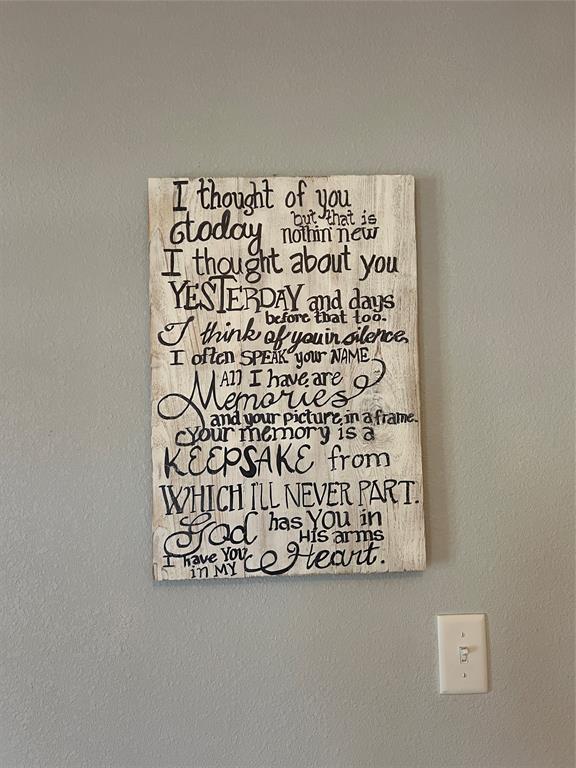 I thought of you
today but that is
nothin' new
I thought about you
YESTERDAY and days
before that too.
I think of you in silence,
I often SPEAK your NAME.
All I have are
Memories
and your picture, in a frame.
Your memory is a
KEEPSAKE from
WHICH I'LL NEVER PART.
God has YOU in
HIS arms
I have You
in MY Heart.